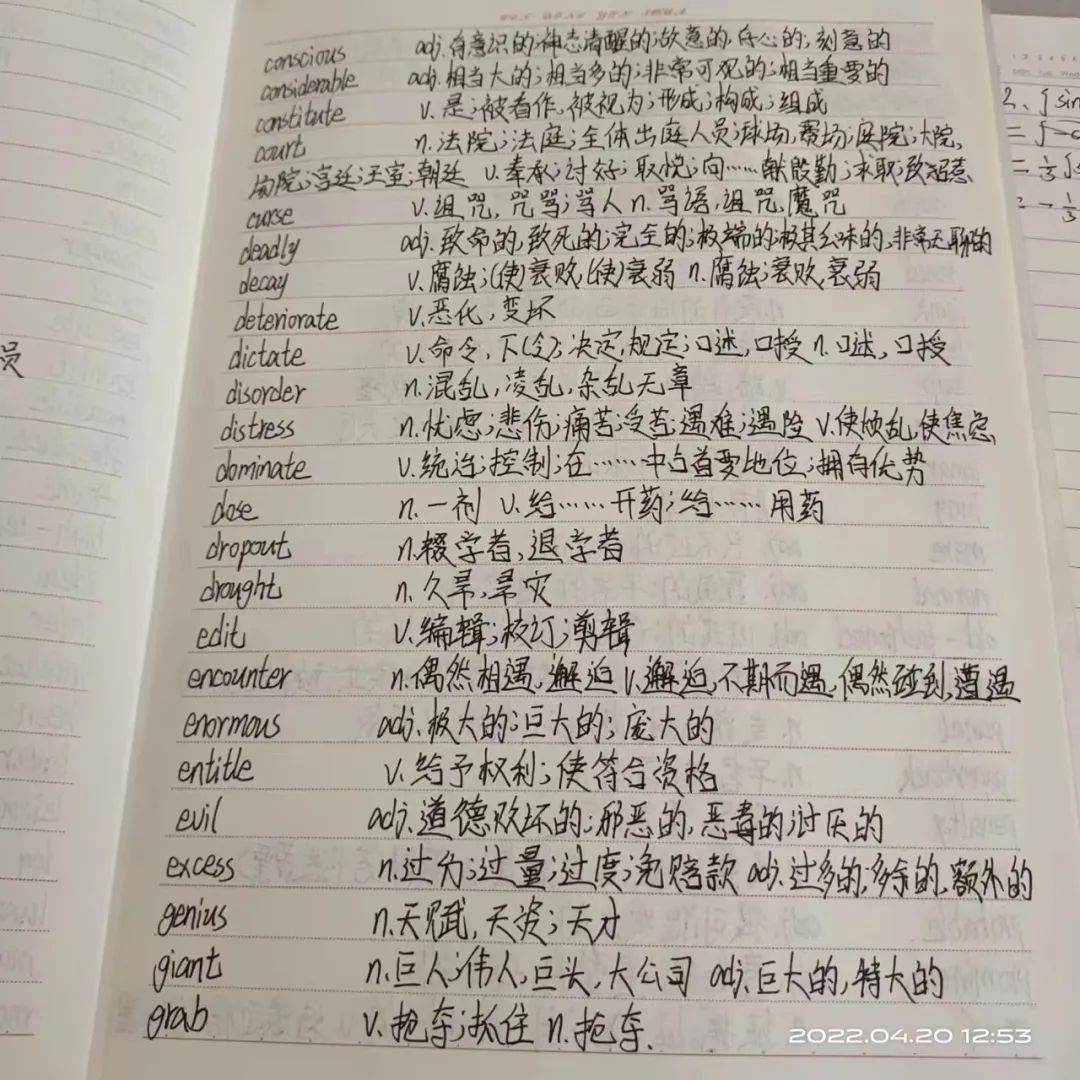 conscious adj.有意识的;神志清醒的;故意的,存心的;刻意的
considerable adj.相当大的;相当多的;非常可观的;相当重要的
constitute v.是;被看作,被视为;形成;构成;组成
court n.法院;法庭;全体出庭人员;球场,赛场;庭院;大院,
宫廷;王室;朝廷 v.奉承;讨好;取悦;向……献殷勤;求取;致招惹
curse v.诅咒,咒骂;骂人 n.骂语,诅咒,魔咒
deadly adj.致命的,致死的;完全的;极端的;极其乏味的,非常无聊的
decay v.腐蚀;(使)衰败,(使)衰弱 n.腐蚀;衰败,衰弱
deteriorate v.恶化,变坏
dictate v.命令,下(令);决定,规定;口述,口授 n.口述,口授
disorder n.混乱,凌乱,杂乱无章
distress n.忧虑;悲伤;痛苦;受苦;遇难;遇险 v.使烦乱,使焦急
dominate v.统治;控制;在……中占首要地位;拥有优势
dose n.一剂 v.给……开药;给……用药
dropout n.辍学者,退学者
drought n.久旱,旱灾
edit v.编辑;校订;剪辑
encounter n.偶然相遇,邂逅 v.邂逅,不期而遇,偶然碰到,遭遇
enormous adj.极大的;巨大的;庞大的
entitle v.给予权利;使符合资格
evil adj.道德败坏的;邪恶的,恶毒的;讨厌的
excess n.过分;过量;过度;免赔款 adj.过多的;多余的,额外的
genius n.天赋,天资;天才
giant n.巨人;伟人,巨头,大公司 adj.巨大的,特大的
grab v.抢夺;抓住 n.抢夺.
员
2、∫sin
2022.04.20 12:53